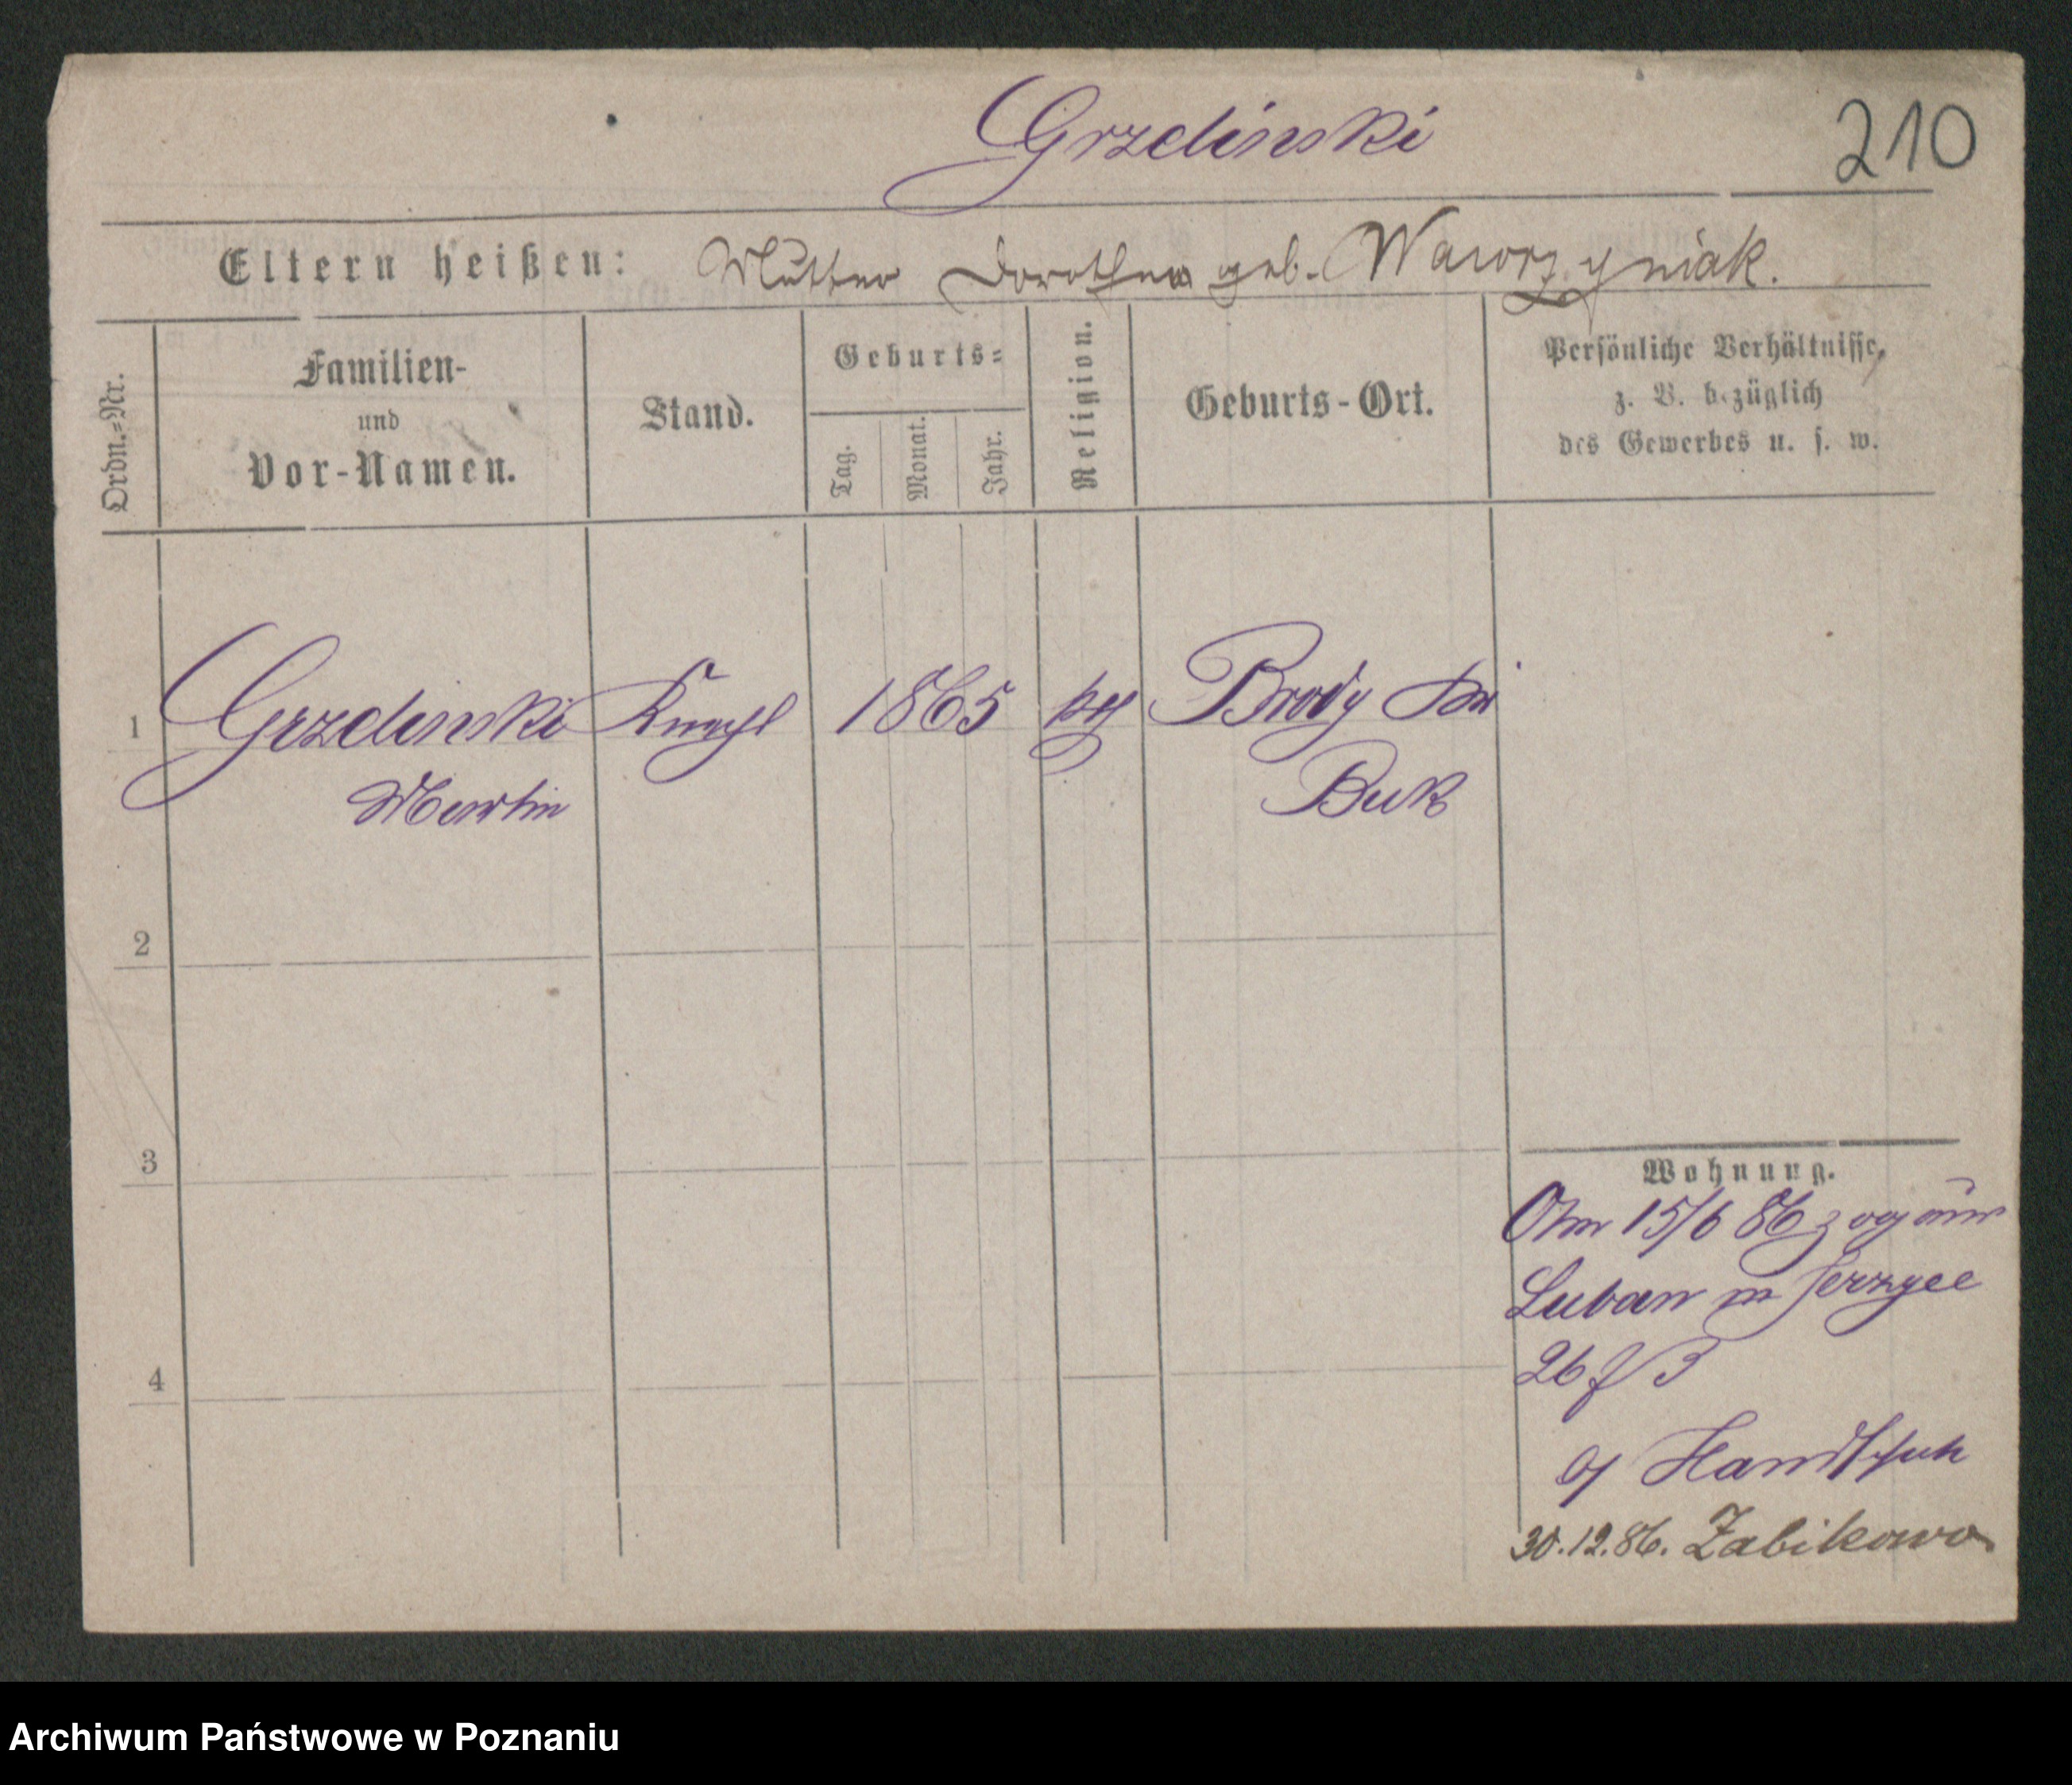 Grzelinski
210
Eltern heißen: Mutter Dorothea geb. Wawrzyniak.
Ordn.-Nr.
Familien-
und
Vor-Namen.
Stand.
Geburts-
Tag.
Monat.
Jahr.
Religion.
Geburts-Ort.
Persönliche Verhältnisse,
z. B. bezüglich
des Gewerbes u. s. w.
1 Grzelinski Knecht 1865 kth Brody Kr
Martin Buk
2
3
4
Wohnung.
Am 15/6 86 zog aus
Luban n Jerzyce
26
Handschuh
30.12.86. Zabikowo
Archiwum Państwowe w Poznaniu